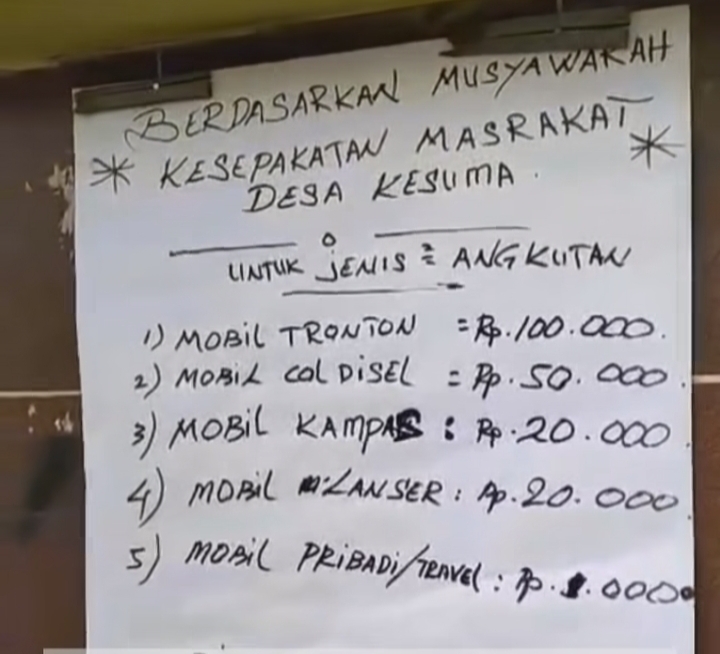 BERDASARKAN MUSYAWARAH
* KESEPAKATAN MASRAKAT *
DESA KESUMA.
UNTUK JENIS² ANGKUTAN
1) MOBIL TRONTON = Rp.100.000.
2) MOBIL COLDISEL = Rp.50.000.
3) MOBIL KAMPAS : Rp.20.000.
4) MOBIL LANSER : Rp.20.000.
5) MOBIL PRIBADI/TRAVEL : Rp. .000